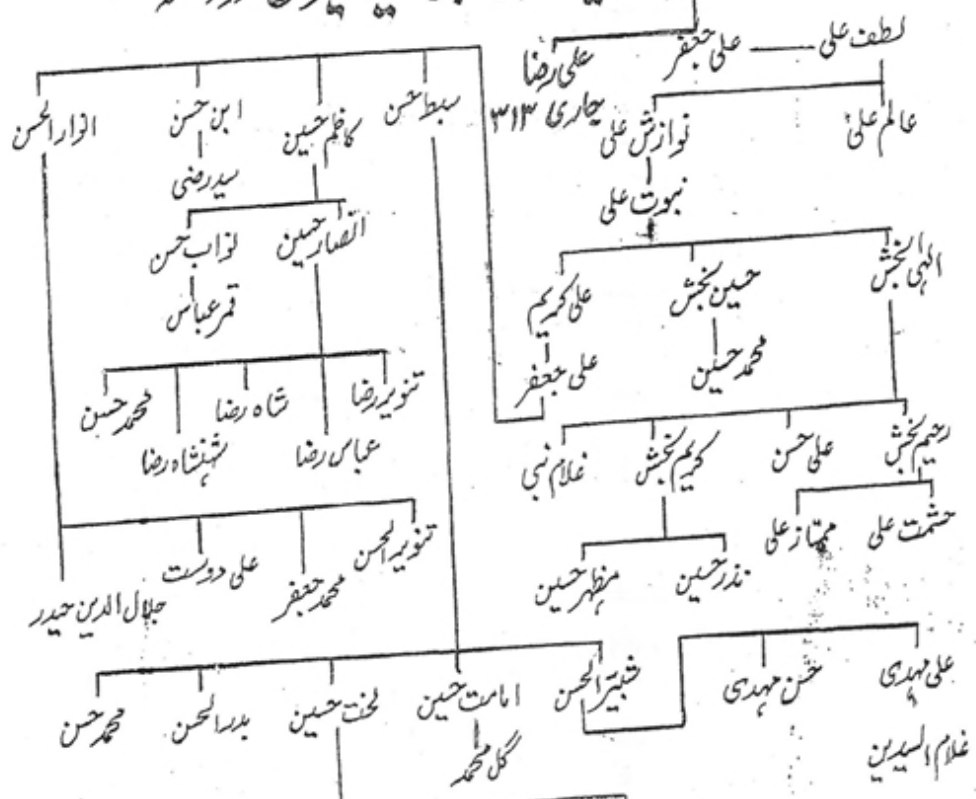 لطف علی علی جعفر علی رضا
جاری ۳۱۳
عالم علی نوازش علی
نبوت علی
الہی بخش حسین بخش علی کریم
محمد حسین علی جعفر
رحیم بخش علی حسن کریم بخش غلام نبی
حشمت علی ممتاز علی
نذر حسین مظہر حسین
سبط حسن کاظم حسین ابن حسن انوار الحسن
سید رضی
انصار حسین نواب حسن
قمر عباس
تنویر رضا شاہ رضا محمد حسین
عباس رضا شہنشاہ رضا
تنویر الحسن محمد جعفر علی دوست جلال الدین حیدر
شبیر الحسن امامت حسین لخت حسین بدر الحسن محمد حسن
گل محمد
علی مہدی حسن مہدی
غلام السیدین